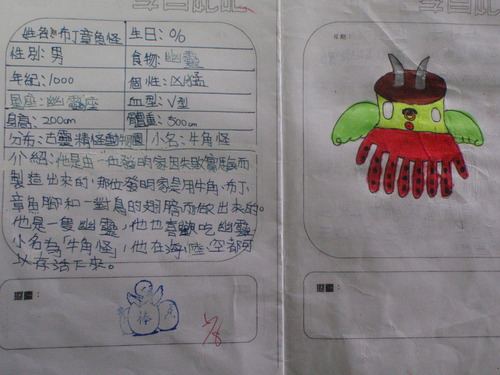 姓名:布丁章魚怪 生日:%
性別:男 食物:幽靈
年紀:1000 個性:凶猛
星座:幽靈座 血型:V型
身高:200cm 體重:500cm
分布:古靈精怪動物園 小名:牛角怪
介紹:他是由一位發明家因失敗實驗而
製造出來的,那位發明家是用牛角、布丁、
章魚腳和一對鳥的翅膀而做出來的。
他是一隻幽靈,他也喜歡吃幽靈
小名為「牛角怪」,他在海、陸、空都可
以存活下來。
棒